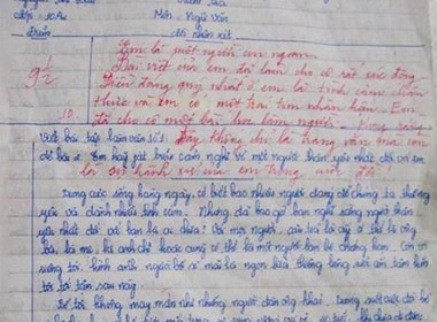 Lớp: 10A1 Môn: Ngữ Văn
Điểm Lời nhận xét
Em là một người con ngoan.
9 1/2 Bài viết của em đã làm cho cô rất xúc động.
Điều đáng quý nhất ở em là tình cảm chân
thực và em có một trái tim nhân hậu. Em
đã cho cô một bài học làm người. Mong rằng
Viết bài tập làm văn số 1: Đây không chỉ là trang văn mà còn
Đề bài: Em hãy phát biểu cảm nghĩ về một người thân yêu nhất đối với em
là sự hành xử của em trong cuộc đời!
Trong cuộc sống hàng ngày, có biết bao nhiêu người đáng để chúng ta thương
yêu và dành nhiều tình cảm. Nhưng đã bao giờ bạn nghĩ rằng người thân
yêu nhất đối với bạn là ai chưa? Với mọi người, câu trả lời ấy có thể là ông
bà, là mẹ, là anh chị hoặc cũng có thể là một người bạn bè chẳng hạn. Còn với
riêng tôi, hình ảnh người bố sẽ mãi là ngọn lửa thiêng liêng sưởi ấm tâm hồn
tôi tận sau này.
Bố tôi không may mắn như những người đàn ông khác. Trong suốt cuộc đời bố